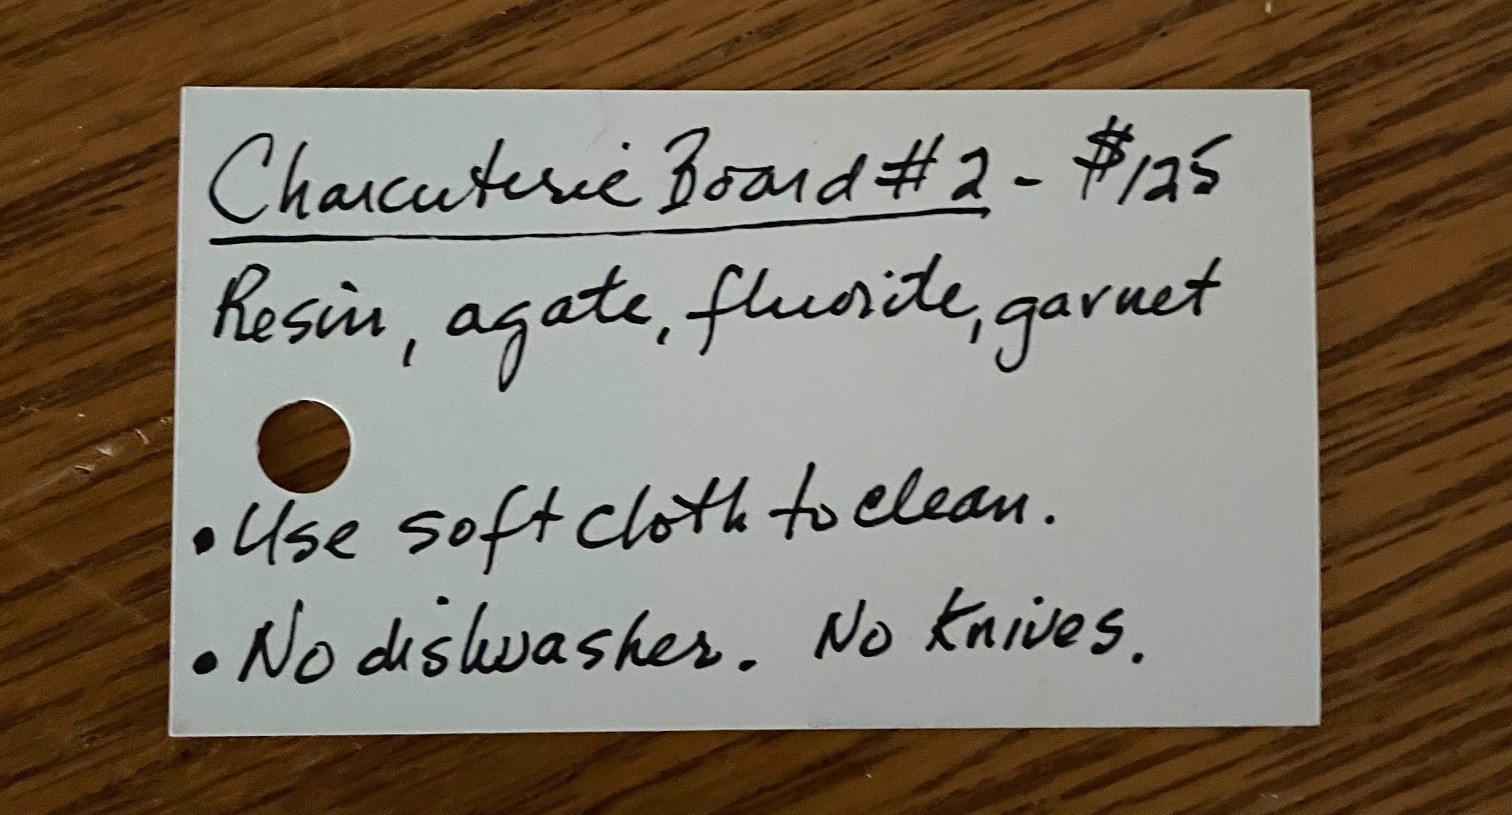 Charcuterie Board #2 - $125
Resin, agate, fluorite, garnet
• Use soft cloth to clean.
• No dishwasher. No knives.